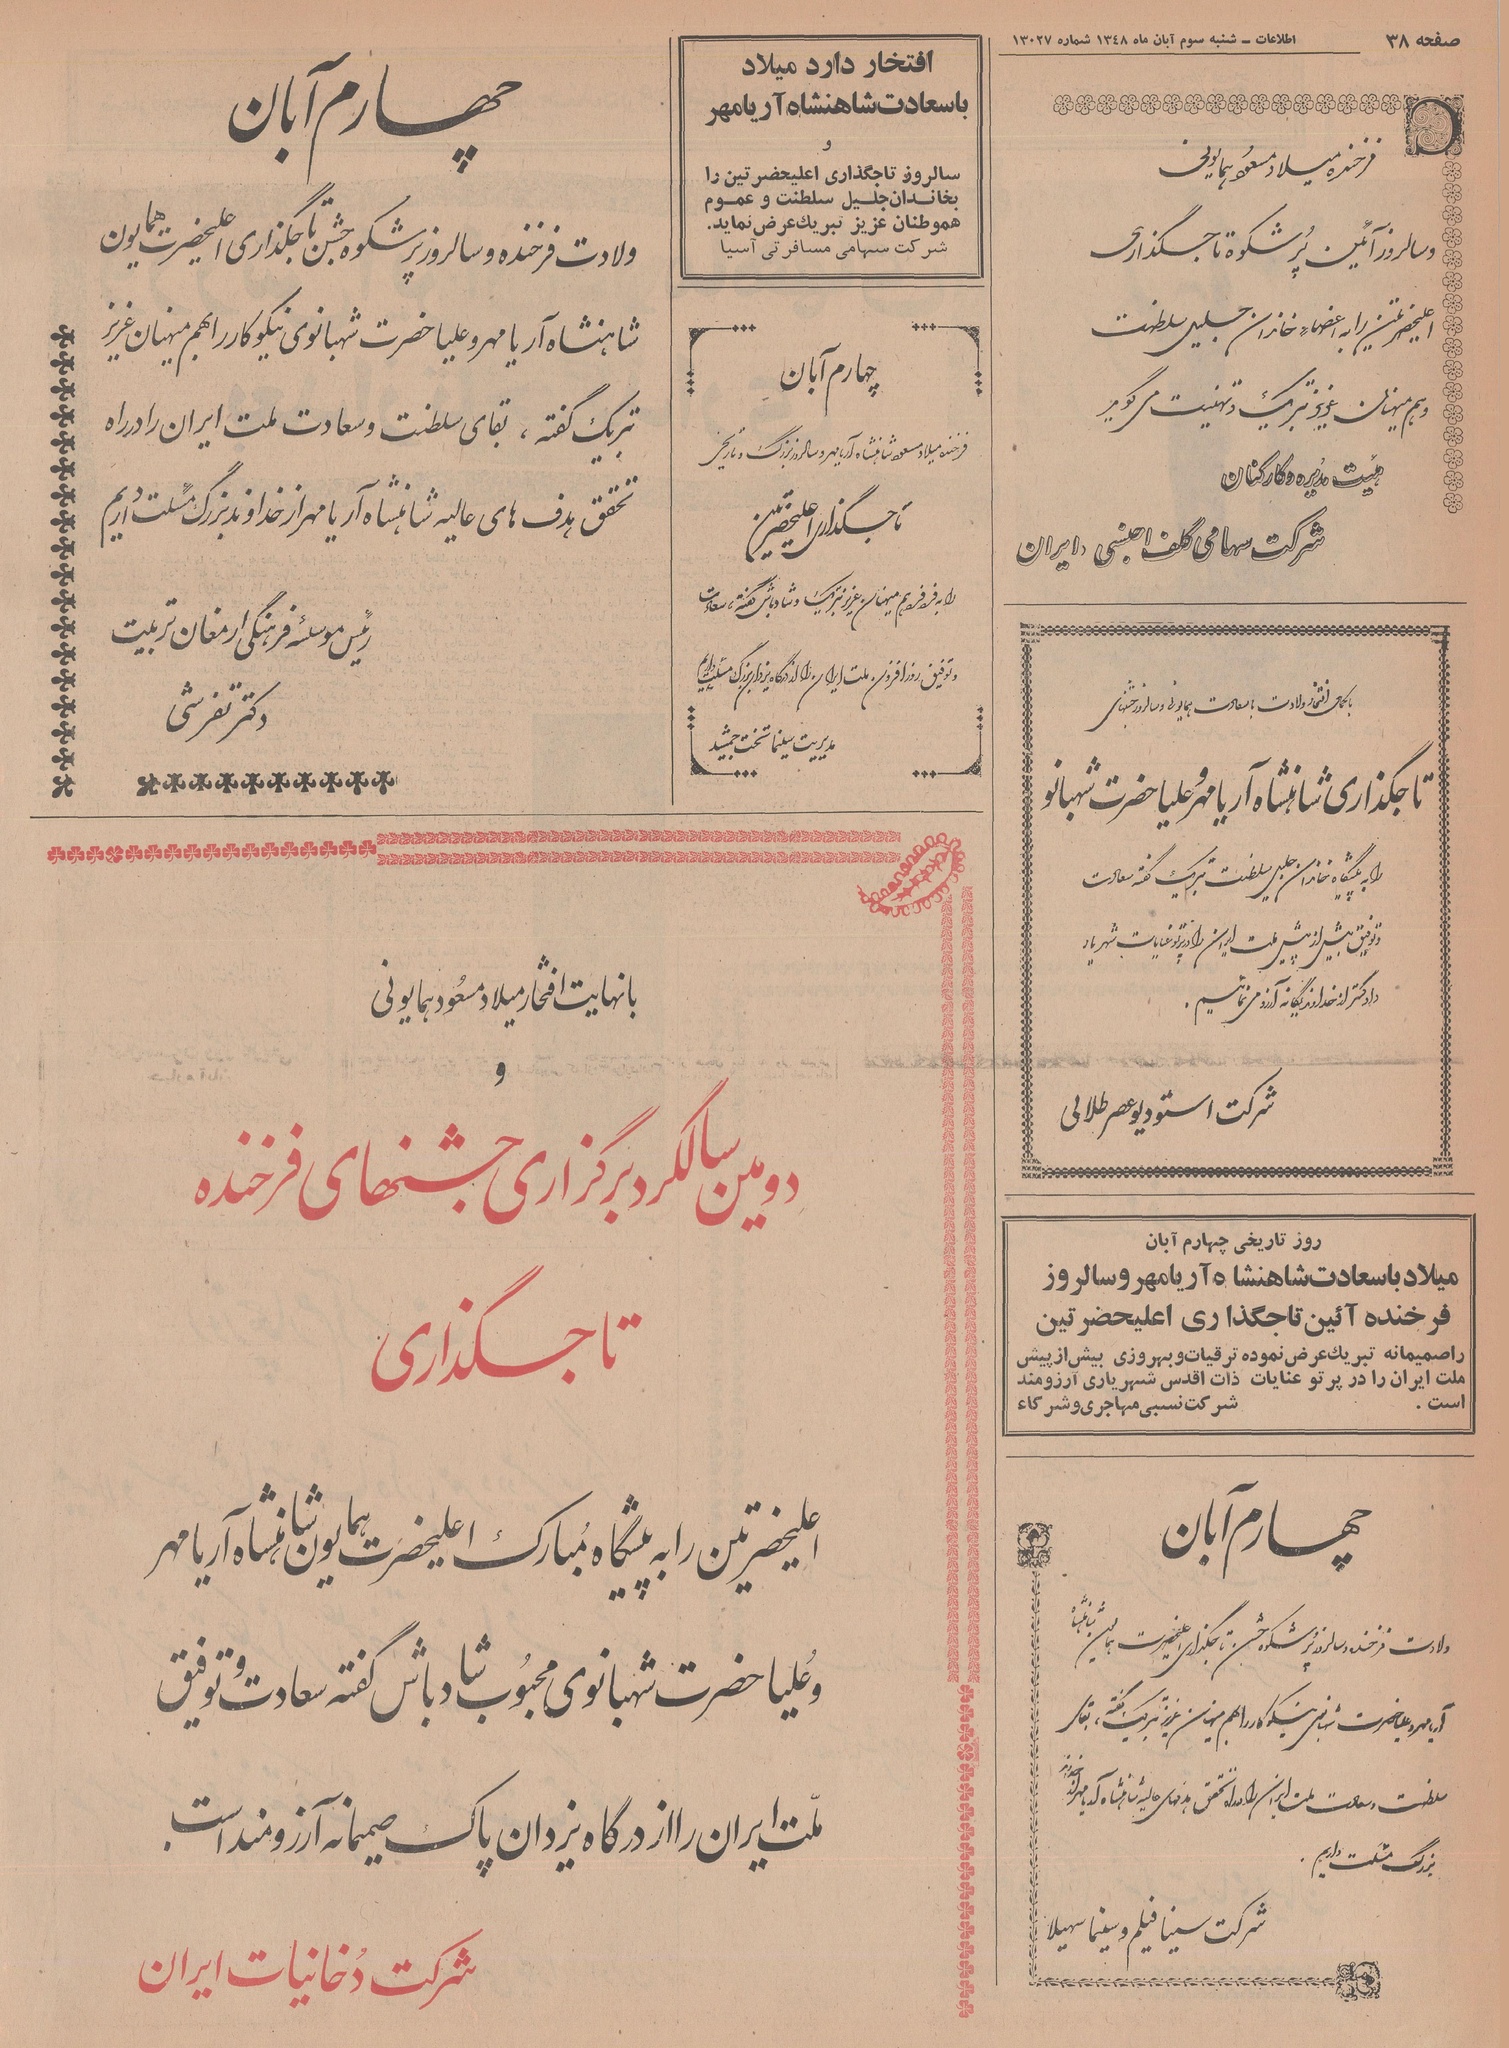 صفحه ۳۸
اطلاعات ـ شنبه سوم آبان ماه ۱۳۴۸ شماره ۱۳۰۲۷
فرخنده میلاد مسعود همایونی
و سالروز آئین پُر شکوه تاجگذاری
اعلیحضرتین را به اعضاء خاندان جلیل سلطنت
و هم میهنان عزیز تبریک و تهنیت می گوید
هیئت مدیره و کارکنان
شرکت سهامی گلف اجنسی ، ایران
با کمال افتخار ولادت با سعادت همایونی و سالروز جشنهای
تاجگذاری شاهنشاه آریامهر و علیاحضرت شهبانو
را به پیشگاه خاندان جلیل سلطنت تبریک گفته سعادت
و توفیق بیش از پیش ملت ایران را در پرتو عنایات شهریار
دادگستر از خداوند یگانه آرزو می نمائیم .
شرکت استودیو عصر طلائی
روز تاریخی چهارم آبان
میلاد باسعادت شاهنشاه آریامهر و سالروز
فرخنده آئین تاجگذاری اعلیحضرتین
را صمیمانه تبریک عرض نموده ترقیات و بهروزی بیش از پیش
ملت ایران را در پرتو عنایات ذات اقدس شهریاری آرزومند
است . شرکت نسبی مهاجری و شرکاء
چهارم آبان
ولادت فرخنده و سالروز پرشکوه جشن تاجگذاری اعلیحضرت همایون شاهنشاه
آریامهر و علیاحضرت شهبانوی نیکوکار را بهم میهنان عزیز تبریک گفته ، بقای
سلطنت و سعادت ملت ایران را در راه تحقق هدفهای عالیه شاهنشاه آریامهر از خداوند
بزرگ مسئلت داریم .
شرکت سینا فیلم و سینما سهیلا
افتخار دارد میلاد
باسعادت شاهنشاه آریامهر
و
سالروز تاجگذاری اعلیحضرتین را
بخاندان جلیل سلطنت و عموم
هموطنان عزیز تبریک عرض نماید.
شرکت سهامی مسافرتی آسیا
چهارم آبان
فرخنده میلاد مسعود شاهنشاه آریامهر و سالروز بزرگ و تاریخی
تاجگذاری اعلیحضرتین
را به فرد فرد هم میهنان عزیز تبریک و شادباش گفته ، سعادت
و توفیق روز افزون ملت ایران را از درگاه یزدان بزرگ مسئلت داریم
مدیریت سینما تخت جمشید
چهارم آبان
ولادت فرخنده و سالروز پر شکوه جشن تاجگذاری اعلیحضرت همایون
شاهنشاه آریامهر و علیاحضرت شهبانوی نیکوکار را بهم میهنان عزیز
تبریک گفته ، بقای سلطنت و سعادت ملت ایران را در راه
تحقق هدف های عالیه شاهنشاه آریامهر از خداوند بزرگ مسئلت داریم
رئیس موسسه فرهنگی ارمغان تربیت
دکتر تفرشی
با نهایت افتخار میلاد مسعود همایونی
و
دومین سالگرد برگزاری جشنهای فرخنده
تاجگذاری
اعلیحضرتین را به پیشگاه مُبارک اعلیحضرت همایون شاهنشاه آریامهر
و عُلیاحضرت شهبانوی محبُوب شادباش گفته سعادت و توفیق
ملّت ایران را از درگاه یزدان پاک صمیمانه آرزومند است
شرکت دُخانیات ایران